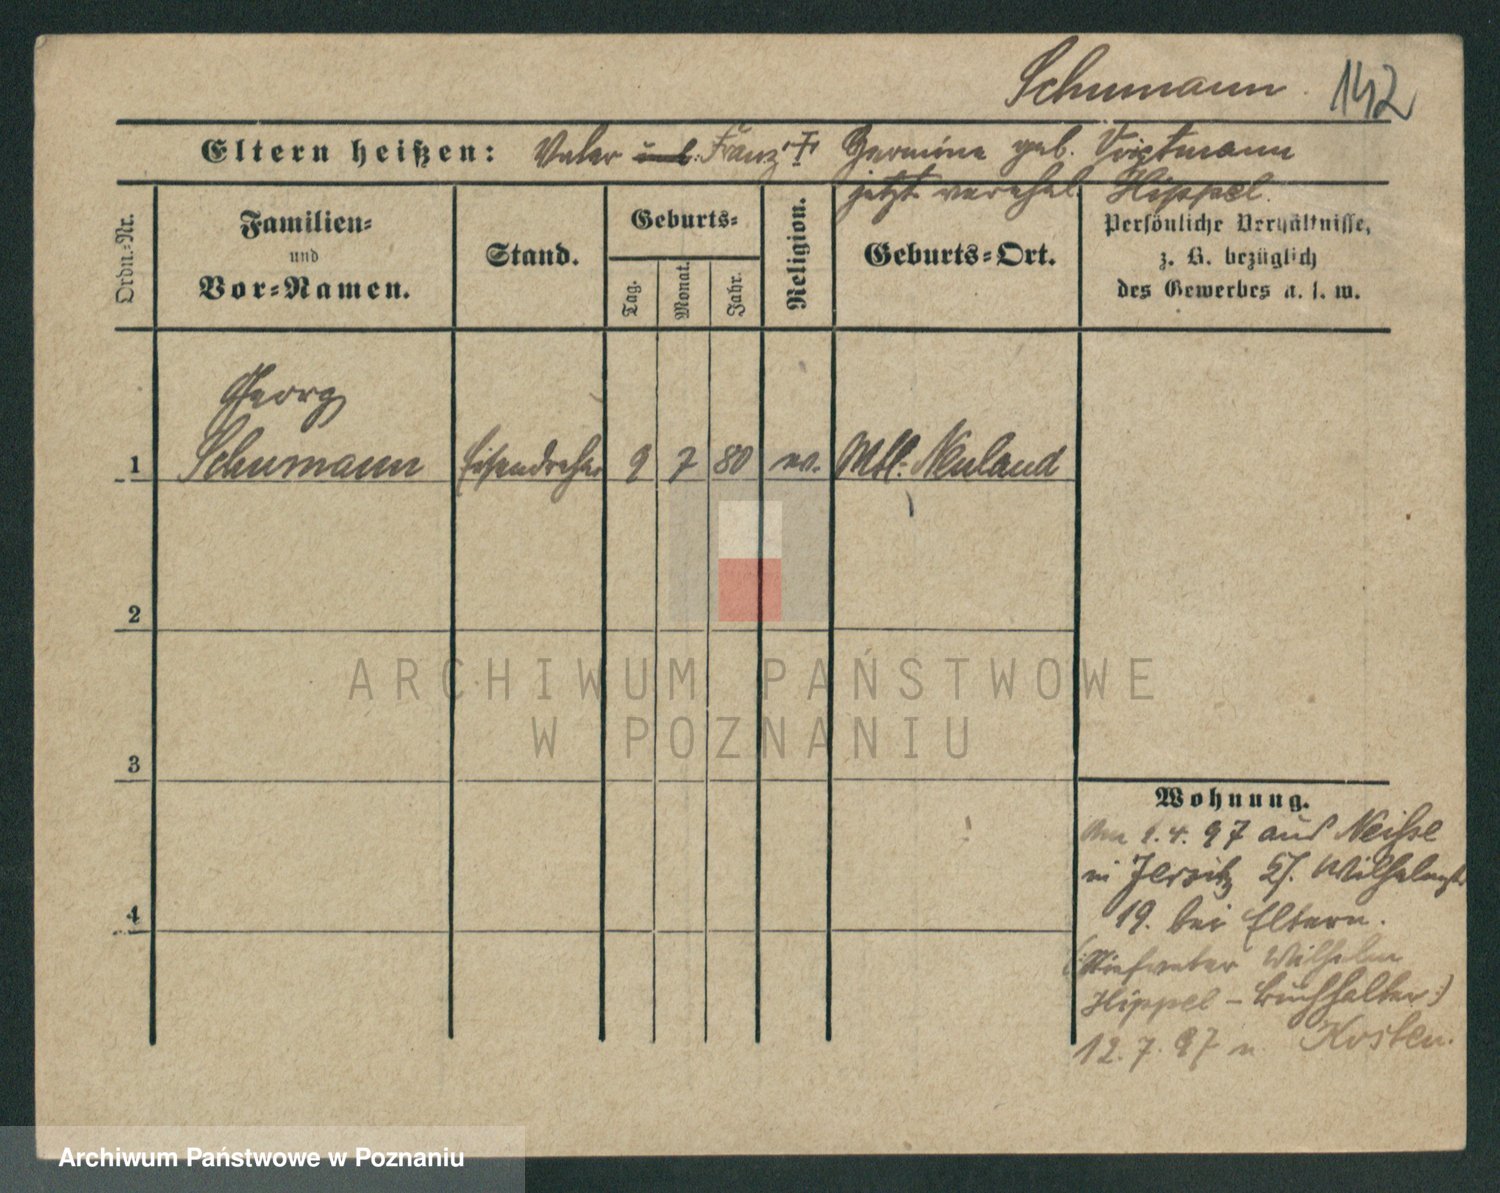 Schumann. 142
Eltern heißen: Vater unb. Franz † Hermine geb. Voigtmann
jetzt verehel. Hippel.
Ordn.-Nr.
Familien-
und
Vor-Namen.
Stand.
Geburts-
Tag.
Monat.
Jahr.
Religion.
Geburts-Ort.
Persönliche Verhältnisse,
z. B. bezüglich
des Gewerbes u. s. w.
Georg
1 Schumann Eisendreher 9 7 80 ev. Mtl. Neuland
2
3
4
Wohnung.
Am 1. 4. 97 aus Neisse
in Jersitz Wilhelmstr
19. bei Eltern.
(Stiefvater Wilhelm
Hippel - Buchhalter)
12. 7. 97 n. Kosten.
ARCHIWUM PAŃSTWOWE
W POZNANIU
Archiwum Państwowe w Poznaniu